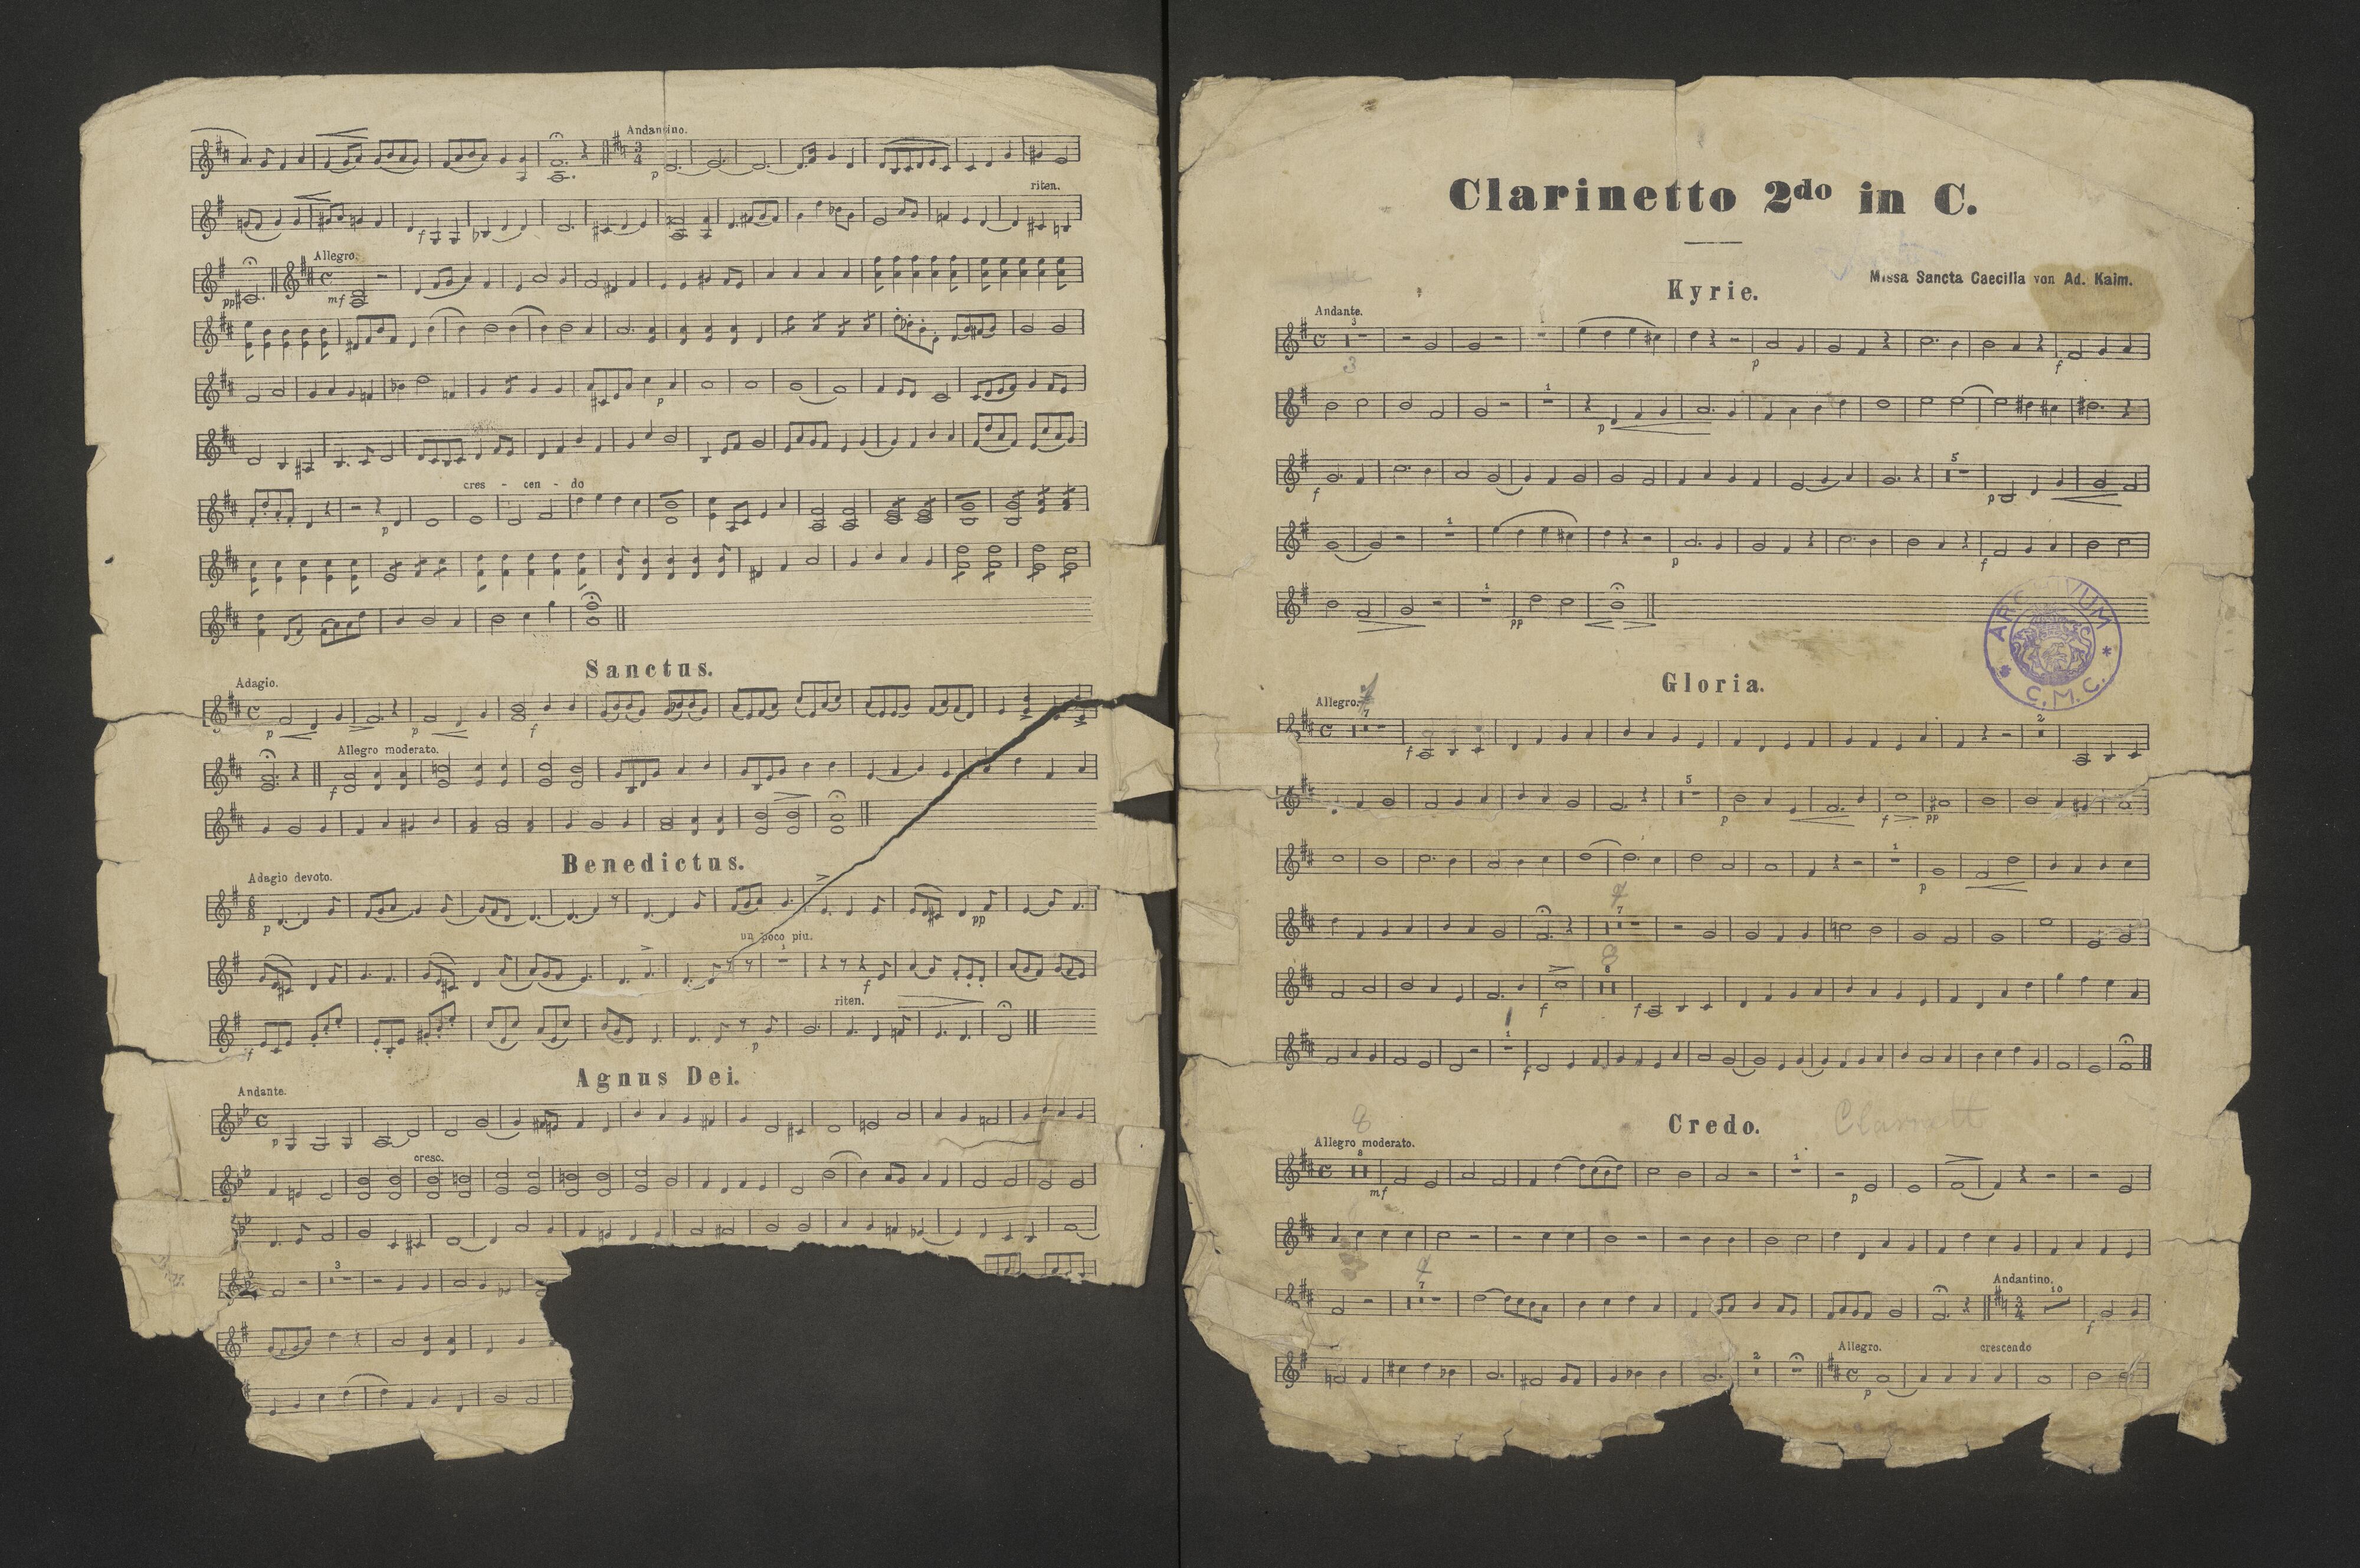 Andantino.
p
riten.
f
Allegro.
pp
mf
p
cres - cen - do
p
Sanctus.
Adagio.
p
p
f
Allegro moderato.
f
Benedictus.
Adagio devoto.
p
pp
un poco piu.
1
f
riten.
f
p
Agnus Dei.
Andante.
p
cresc.
3
Clarinetto 2do in C.
Missa Sancta Caecilia von Ad. Kaim.
Kyrie.
Andante.
3
3
p
f
1
p
5
f
p
1
p
f
1
pp
ARCHIVUM
C. M. C.
Gloria.
Allegro.
7
2
f
5
p
f
pp
1
p
7
7
8
8
f
f
1
f
8
Credo.
Clarinett
Allegro moderato.
8
1
mf
p
7
7
Andantino.
10
f
Allegro.
crescendo
2
p